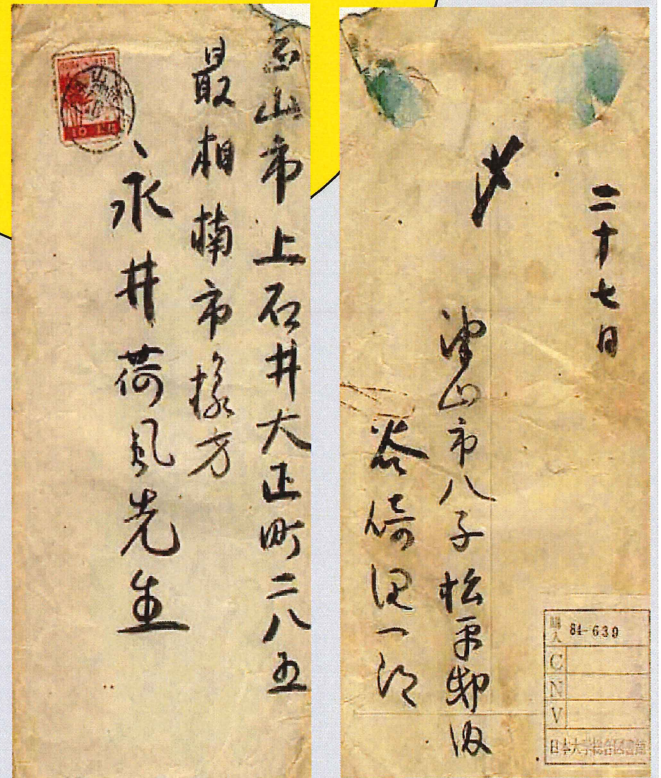 岡山市上石井大正町二八五
最相楠市様方
永井荷風先生
10
二十七日
〆
津山市八子松平邸内
谷崎潤一郎
購入 84-639
C
N
V
日本大学総合図書館